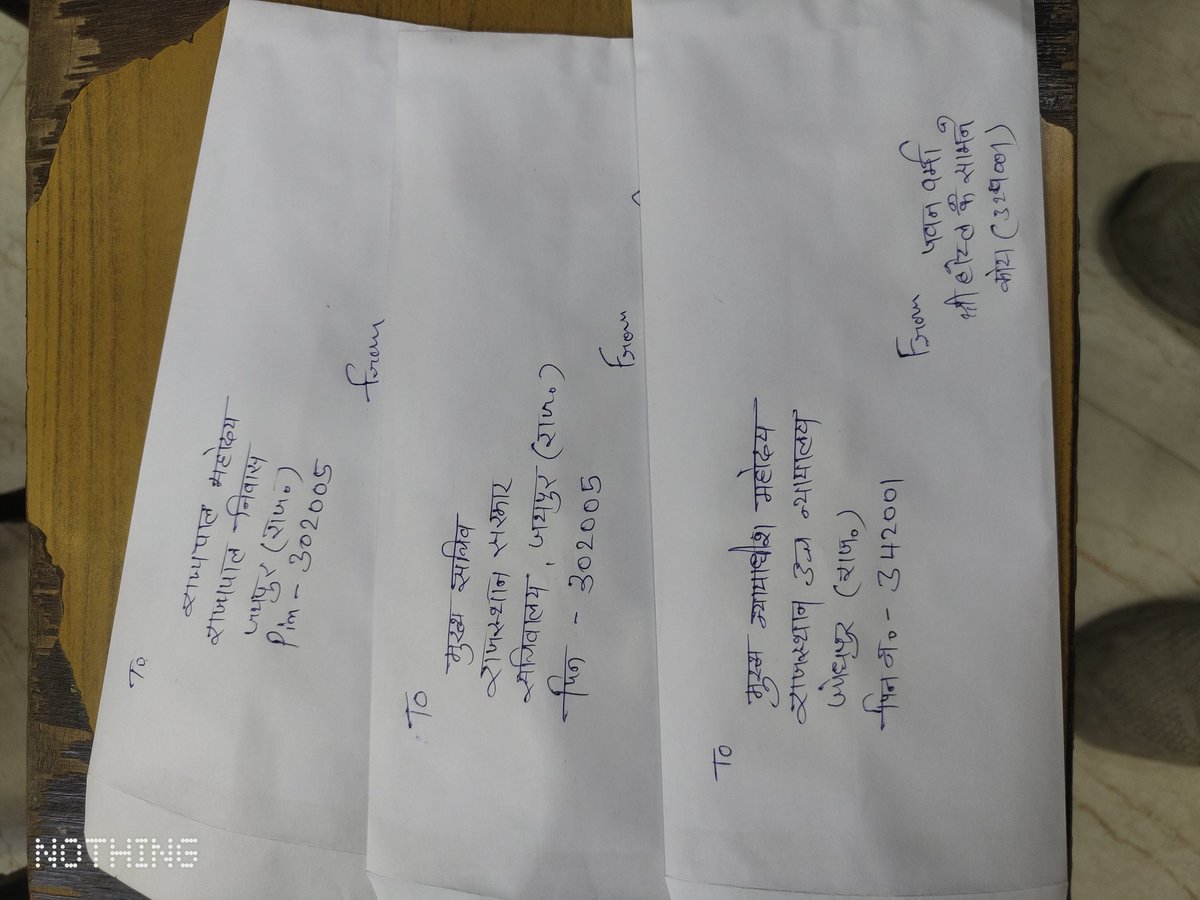 To
राज्यपाल महोदय
राज्यपाल निवास
जयपुर (राज०)
Pin - 302005
From
To
मुख्य सचिव
राजस्थान सरकार
सचिवालय, जयपुर (राज०)
पिन - 302005
From
To
मुख्य न्यायाधीश महोदय
राजस्थान उच्च न्यायालय
जोधपुर (राज०)
पिन नं० - 342001
From
पवन वर्मा
श्री होटल के सामने
NOTHING